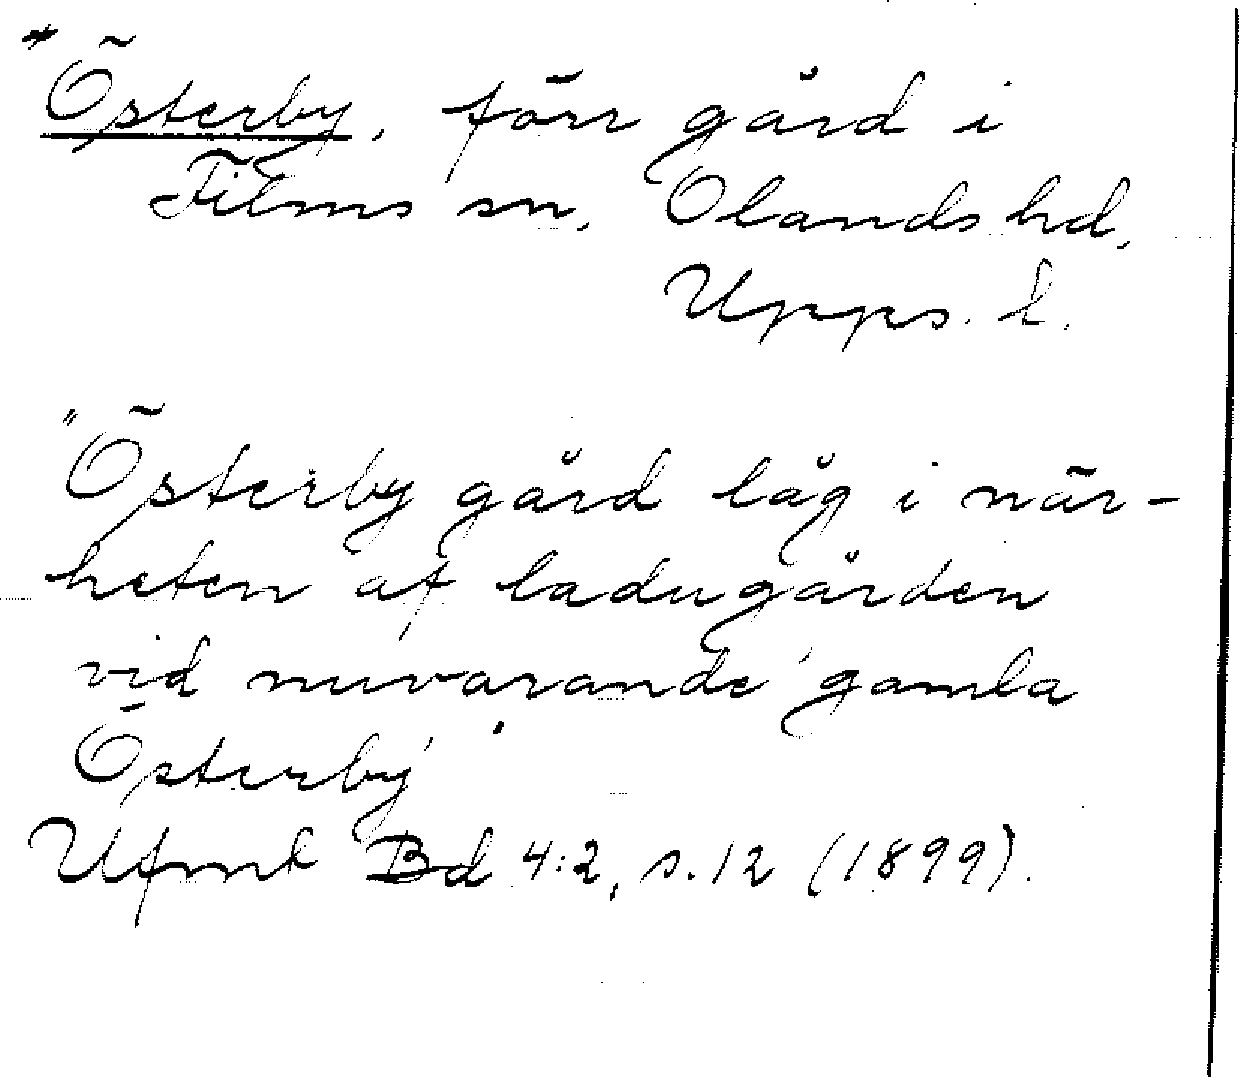 *Österby, förr gård i
Films sn, Olands hd,
Upps. l.
"Österby gård låg i när-
heten af ladugården
vid nuvarande 'gamla
Österby'"
Ufmt Bd 4:2, s. 12 (1899).